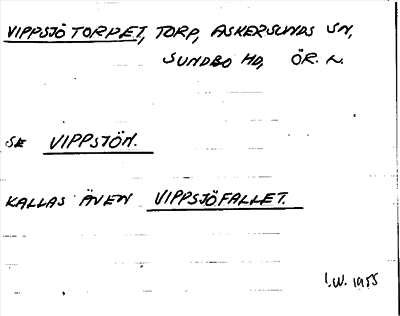 VIPPSJÖTORPET, TORP, ASKERSUNDS SN,
SUNDBO HD, ÖR. L.
SE VIPPSJÖN.
KALLAS ÄVEN VIPPSJÖFALLET.
I.W. 1955